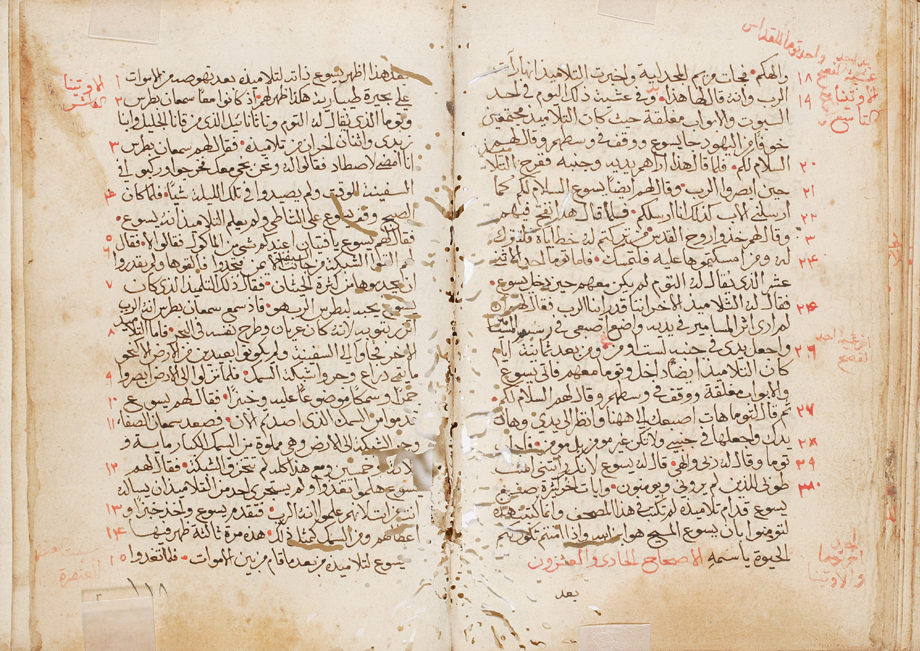 والهكم فجات مريم المجدلية واخبرت التلاميذ انها رات ١٨
الرب وانه قال لها هذا وفي عشية ذلك اليوم في احد ١٩
السبوت والابواب مغلقة حيث كان التلاميذ مجتمعين
خوفا من اليهود جا يسوع ووقف في وسطهم وقال لهم
السلام لكم فلما قال هذا اراهم يديه وجنبه ففرح التلا ٢٠
حين ابصروا الرب وقال لهم ايضا يسوع السلام لكم كما ٢١
ارسلني الاب كذلك انا ارسلكم فلما قال هذا نفخ فيهم ٢٢
وقال لهم خذوا روح القدس من تركتم له خطاياه
له ومن امسكتموها عليه فلتمسك فاما توما احد الاثني ٢٤
عشر الذي يقال له التوم لم يكن معهم حين دخل يسوع
فقال له التلاميذ الاخر اننا قد راينا الرب فقال لهم ان
لم ارى اثر المسامير في يديه واضع اصبعي في
واجعل يدي في جنبه لست اومن ومن بعد ثمانية ايام ٢٦
كان التلاميذ ايضا داخل وتوما معهم فاتى يسوع
والابواب مغلقة ووقف في وسطهم وقال لهم السلام لكم
ثم قال لتوما هات اصبعك الى ههنا وانظر الى يدي وهات ٢٧
يدك واجعلها في جنبي ولا تكن غير مومن بل مومن فاجاب ٢٨
توما وقال له ربي والهي قال له يسوع لانك رايتني امنت ٢٩
طوبى للذين لم يروني ويومنون وايات اخر كثيرة صنع ٣٠
يسوع قدام تلاميذه لم تكتب في هذا المصحف وانما كتبت هذه
لتومنوا بان يسوع المسيح هو ابن الله واذا امنتم تكون لكم
الحيوة باسمه الاصحاح الحادي والعشرون
بعد
بعد هذا اظهر يسوع ذاته لتلاميذه بعد نهوضه من الاموات ١
على بحيرة طبارية هكذا ظهر لهم اذ كانوا معا سمعان بطرس ٢
وتوما الذي يقال له التوم وناثانائيل الذي من قانا الجليل وابنا
زبدى واثنان اخران من تلاميذه فقال لهم سمعان بطرس ٣
انا امضي لاصطاد فقالوا له ونحن نجي معك فخرجوا وركبوا في
السفينة للوقت ولم يصيدوا في تلك الليلة شيا فلما كان ٤
الصبح وقف يسوع على الشاطي ولم يعلم التلاميذ انه يسوع
فقال لهم يسوع يا فتيان اعندكم شي من الماكول فقالوا لا فقال ٥ ٦
لهم القوا الشبكة من جانب السفينة الايمن فتجدوا فالقوها ولم يقدروا
ان يجذبوها من كثرة الحيتان فقال ذلك التلميذ الذي كان ٧
يسوع يحبه لبطرس الرب هو فاذ سمع سمعان بطرس انه الرب
اتزر بثوبه لانه كان عريان وطرح نفسه في البحر فاما التلاميذ ٨
الاخر فجاوا الى السفينة ولم يكونوا بعيدين من الارض الا نحو
مايتي ذراع وجروا شبكة السمك فلما نزلوا الى الارض ابصروا ٩
جمرا وسمكا موضوعا عليه وخبزا فقال لهم يسوع ١٠
قدموا من السمك الذي اصدتم الان فصعد سمعان الصفا ١١
وجر الشبكة الى الارض وهي مملوة من السمك الكبار ماية و
وخمسين ومع هذا كله لم تتخرق الشبكة فقال لهم ١٢
يسوع هلموا تغدوا ولم يستجري احد من التلاميذ ان يساله
انت من لانهم علموا انه الرب فتقدم يسوع واخذ خبزا و ١٣
اعطاهم ومن السمك كذلك هذه مرة ثالثة ظهر فيها ١٤
يسوع لتلاميذه من بعد ما قام من بين الاموات فلما تغدوا ١٥
١١٨